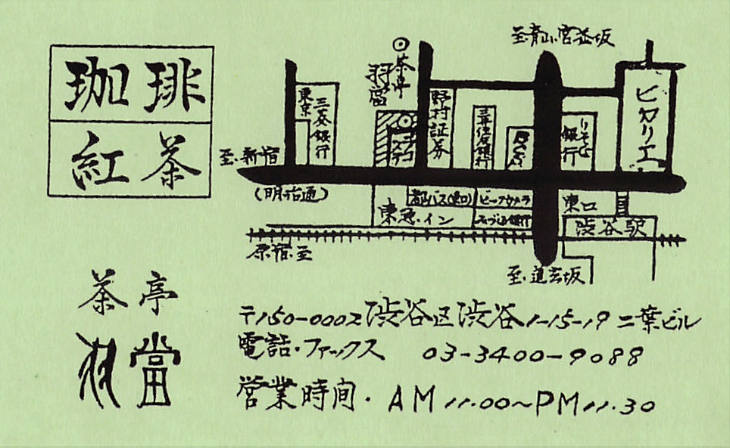 珈琲
紅茶
茶亭
羽當
至・青山、宮益坂
茶亭
羽當
東京
三菱銀行
野村証券
三井住友銀行
りそな
銀行
ヒカリエ
至・新宿
(明治通)
都バス(東口)
ビックカメラ
東急・イン
みづほ銀行
東口
渋谷駅
原宿・至
至・道玄坂
〒150-0002 渋谷区渋谷1-15-19 二葉ビル
電話・ファックス 03-3400-9088
営業時間・AM 11.00〜PM 11.30